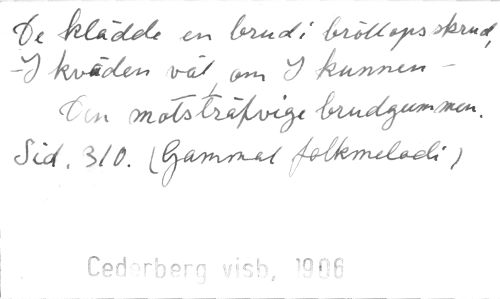 De klädde en brud i bröllopsskrud,
- I kväden väl, om I kunnen -
Den motsträfvige brudgummen.
Sid. 310. (Gammal folkmelodi)
Cederberg visb, 1906